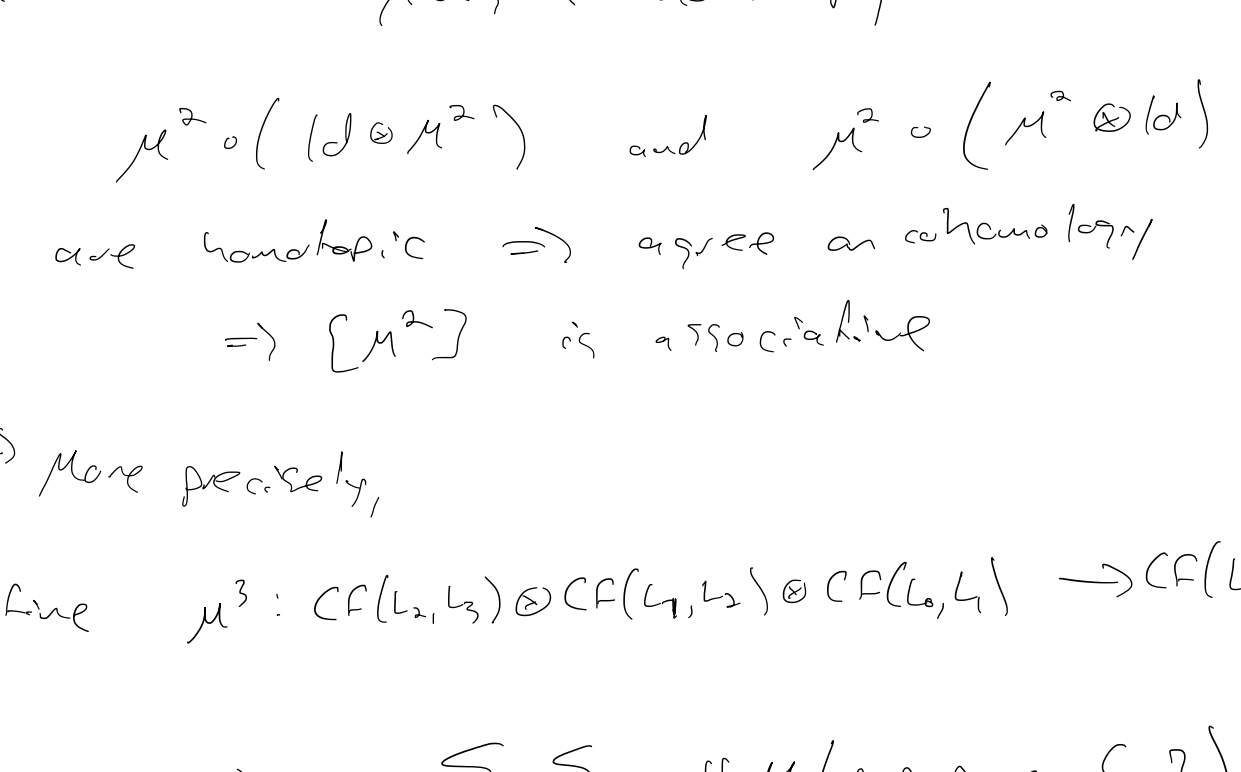 μ² ∘ ( Id ⊗ μ² ) and μ² ∘ ( μ² ⊗ Id )
are homotopic ⇒ agree on cohomology
⇒ [μ²] is associative
) More precisely,
fine μ³ : CF(L₂, L₃) ⊗ CF(L₁, L₂) ⊗ CF(L₀, L₁) → CF(L